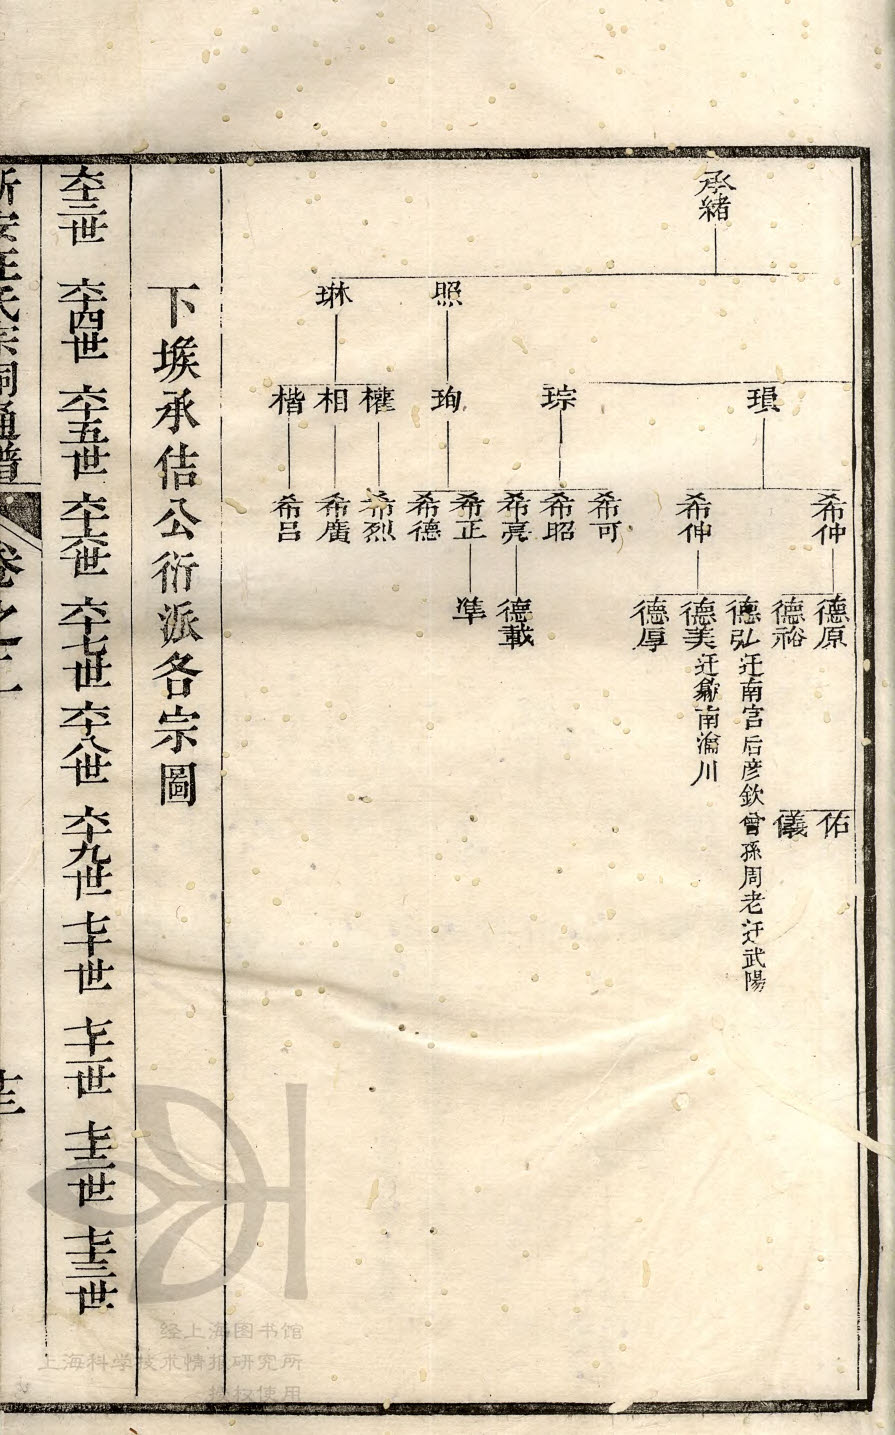 承緒
照
琳
瑻
琮
珣
權
相
楷
希仲
希仲
希可
希昭
希亮
希正
希德
希烈
希廣
希呂
德原
德裕
德弘 迁南宮后彦欽曾孫周老迁武陽
德美 迁歙南瀹川
德厚
德載
準
佑
儀
下堠承佶公衍派各宗圖
六十三世 六十四世 六十五世 六十六世 六十七世 六十八世 六十九世 七十世 七十一世 七十二世 七十三世
新安汪氏宗祠通譜 卷之二
十三
经上海图书馆
上海科学技术情报研究所
授权使用